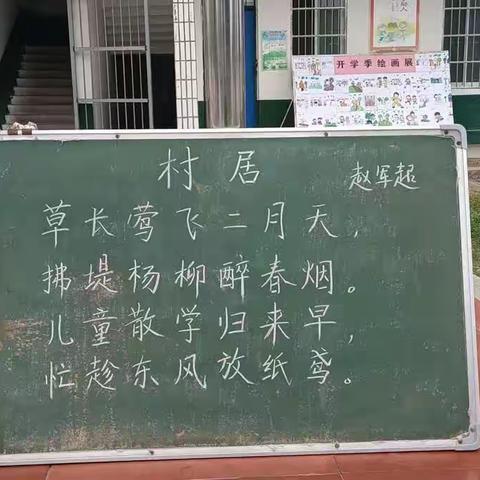 开学季绘画展
村居
赵军超
草长莺飞二月天，
拂堤杨柳醉春烟。
儿童散学归来早，
忙趁东风放纸鸢。